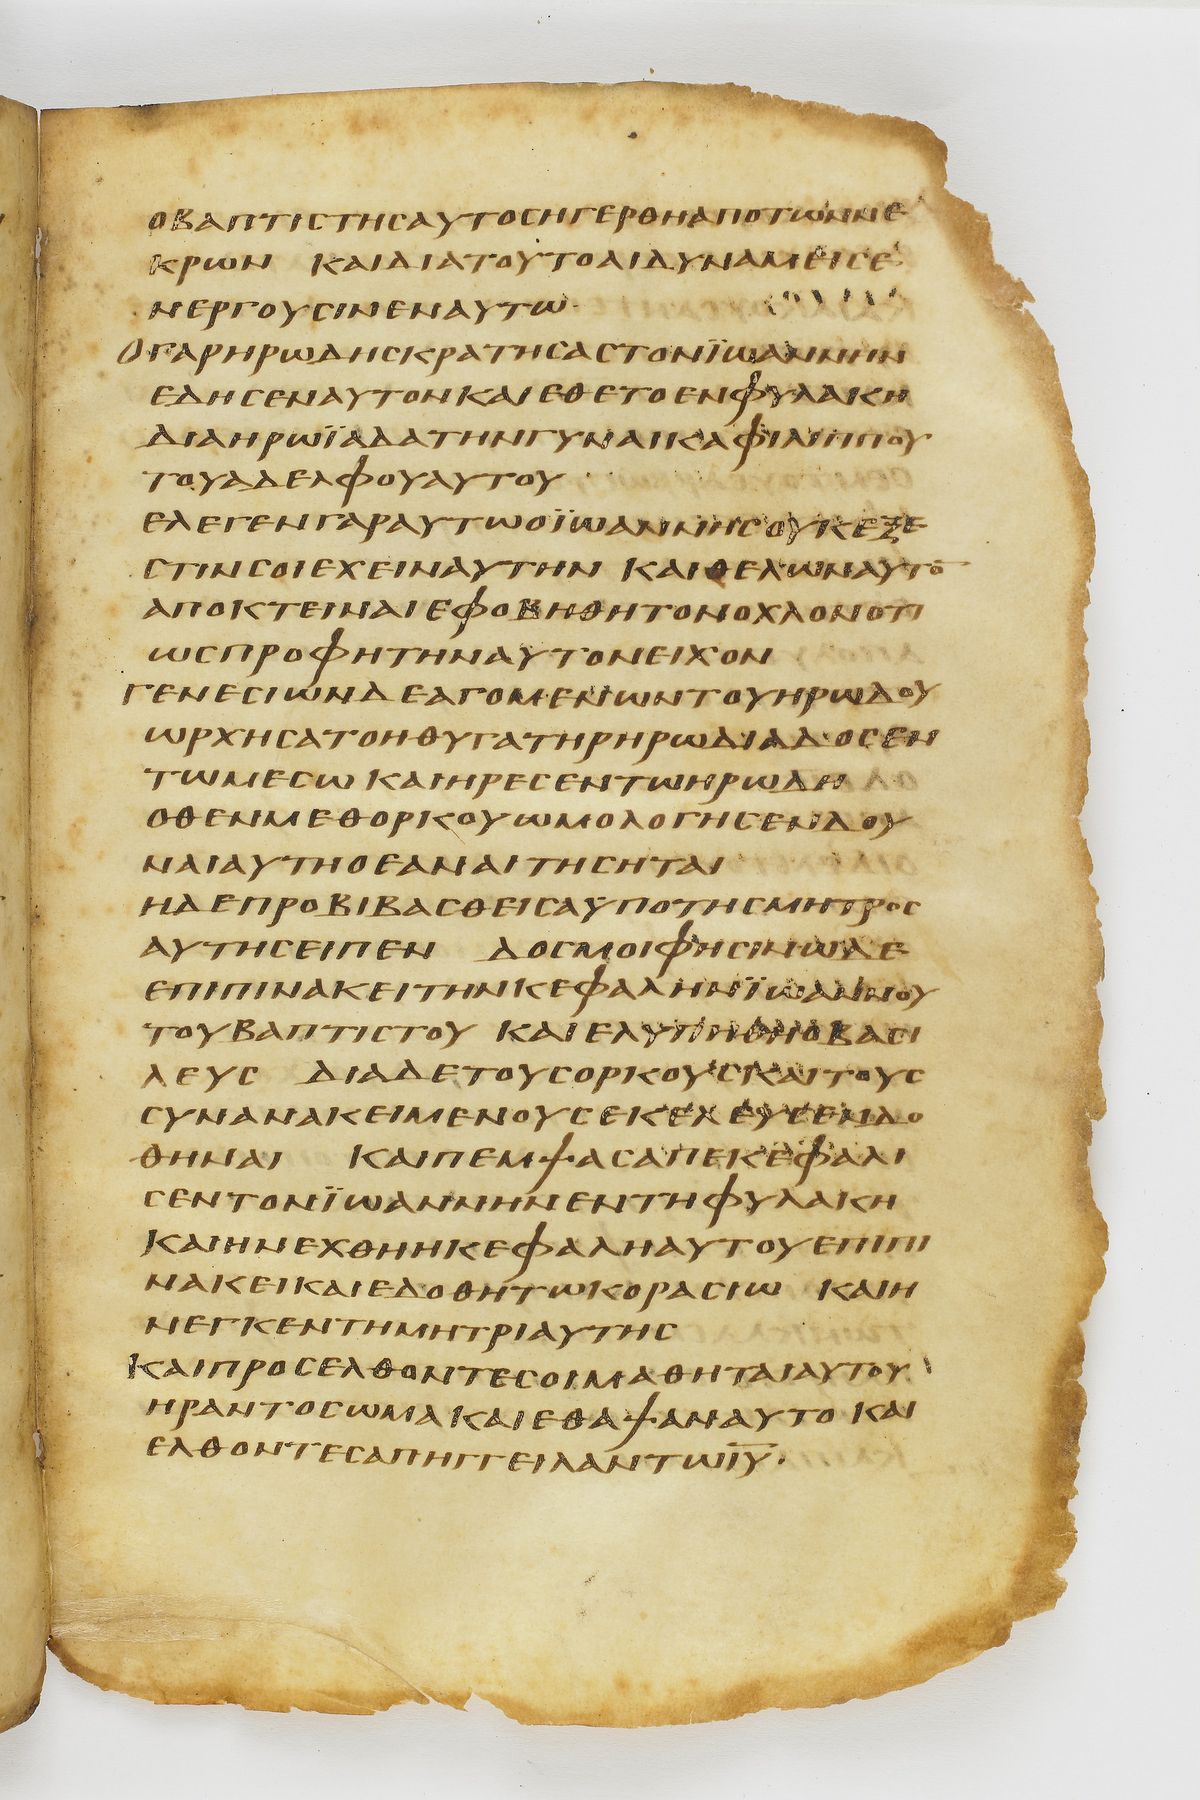 ΟΒΑΠΤΙCΤΗCΑΥΤΟCΗΓΕΡΘΗΑΠΟΤΩΝΝΕ
ΚΡΩΝ ΚΑΙΔΙΑΤΟΥΤΟΑΙΔΥΝΑΜΕΙCΕ
ΝΕΡΓΟΥCΙΝΕΝΑΥΤΩ·
ΟΓΑΡΗΡΩΔΗCΚΡΑΤΗCΑCΤΟΝΪΩΑΝΝΗΝ
ΕΔΗCΕΝΑΥΤΟΝΚΑΙΕΘΕΤΟΕΝΦΥΛΑΚΗ
ΔΙΑΗΡΩΪΑΔΑΤΗΝΓΥΝΑΙΚΑΦΙΛΙΠΠΟΥ
ΤΟΥΑΔΕΛΦΟΥΑΥΤΟΥ
ΕΛΕΓΕΝΓΑΡΑΥΤΩΟΪΩΑΝΝΗCΟΥΚΕΞΕ
CΤΙΝCΟΙΕΧΕΙΝΑΥΤΗΝ ΚΑΙΘΕΛΩΝΑΥΤΟ̅
ΑΠΟΚΤΕΙΝΑΙΕΦΟΒΗΘΗΤΟΝΟΧΛΟΝΟΤΙ
ΩCΠΡΟΦΗΤΗΝΑΥΤΟΝΕΙΧΟΝ
ΓΕΝΕCΙΩΝΔΕΑΓΟΜΕΝΩΝΤΟΥΗΡΩΔΟΥ
ΩΡΧΗCΑΤΟΗΘΥΓΑΤΗΡΗΡΩΔΙΑΔΟCΕΝ
ΤΩΜΕCΩ ΚΑΙΗΡΕCΕΝΤΩΗΡΩΔΗ
ΟΘΕΝΜΕΘΟΡΚΟΥΩΜΟΛΟΓΗCΕΝΔΟΥ
ΝΑΙΑΥΤΗΟΕΑΝΑΙΤΗCΗΤΑΙ
ΗΔΕΠΡΟΒΙΒΑCΘΕΙCΑΥΠΟΤΗCΜΗΤΡΟC
ΑΥΤΗCΕΙΠΕΝ ΔΟCΜΟΙΦΗCΙΝΩΔΕ
ΕΠΙΠΙΝΑΚΕΙΤΗΝΚΕΦΑΛΗΝΪΩΑΝΝΟΥ
ΤΟΥΒΑΠΤΙCΤΟΥ ΚΑΙΕΛΥΠΗΘΗΟΒΑCΙ
ΛΕΥC ΔΙΑΔΕΤΟΥCΟΡΚΟΥCΚΑΙΤΟΥC
CΥΝΑΝΑΚΕΙΜΕΝΟΥCΕΚΕΛΕΥCΕΝΔΟ
ΘΗΝΑΙ ΚΑΙΠΕΜΨΑCΑΠΕΚΕΦΑΛΙ
CΕΝΤΟΝΪΩΑΝΝΗΝΕΝΤΗΦΥΛΑΚΗ
ΚΑΙΗΝΕΧΘΗΗΚΕΦΑΛΗΑΥΤΟΥΕΠΙΠΙ
ΝΑΚΕΙΚΑΙΕΔΟΘΗΤΩΚΟΡΑCΙΩ ΚΑΙΗ
ΝΕΓΚΕΝΤΗΜΗΤΡΙΑΥΤΗC
ΚΑΙΠΡΟCΕΛΘΟΝΤΕCΟΙΜΑΘΗΤΑΙΑΥΤΟΥ
ΗΡΑΝΤΟCΩΜΑΚΑΙΕΘΑΨΑΝΑΥΤΟ ΚΑΙ
ΕΛΘΟΝΤΕCΑΠΗΓΓΕΙΛΑΝΤΩΙ̅Υ̅·